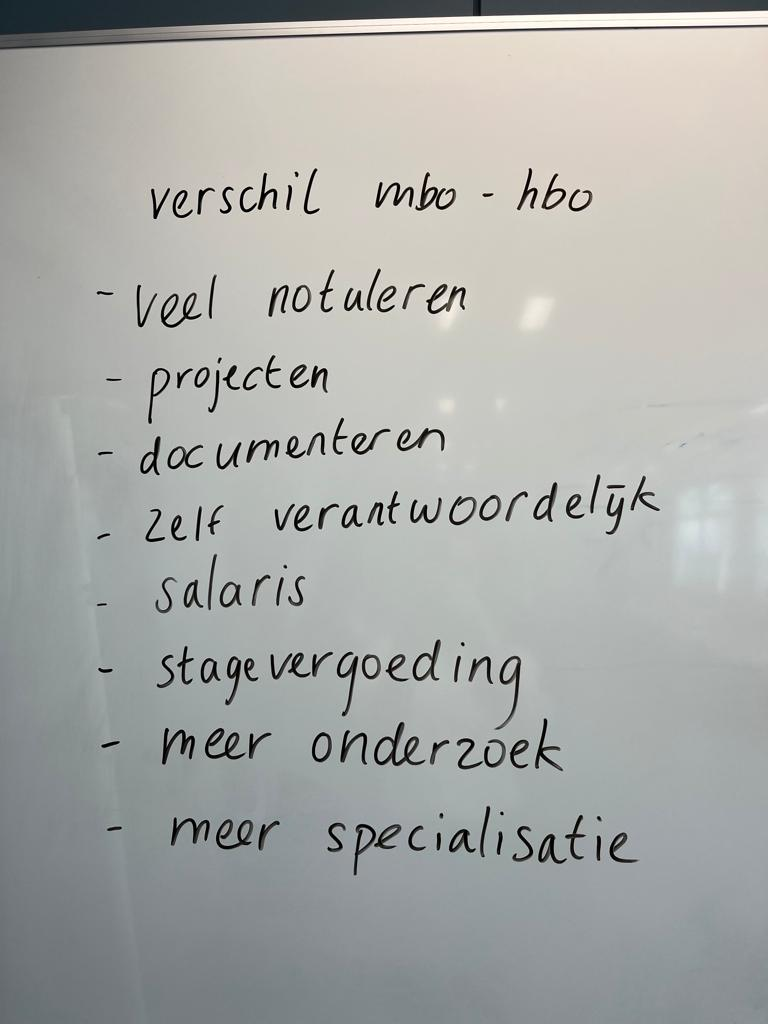 verschil mbo - hbo
- veel notuleren
- projecten
- documenteren
- zelf verantwoordelijk
- salaris
- stagevergoeding
- meer onderzoek
- meer specialisatie